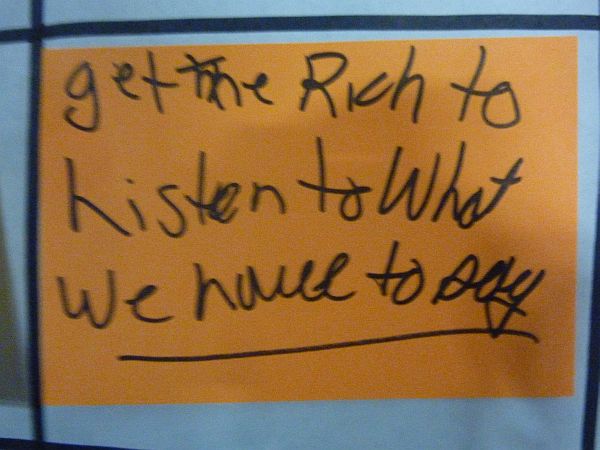 get the Rich to
Listen to What
We have to say